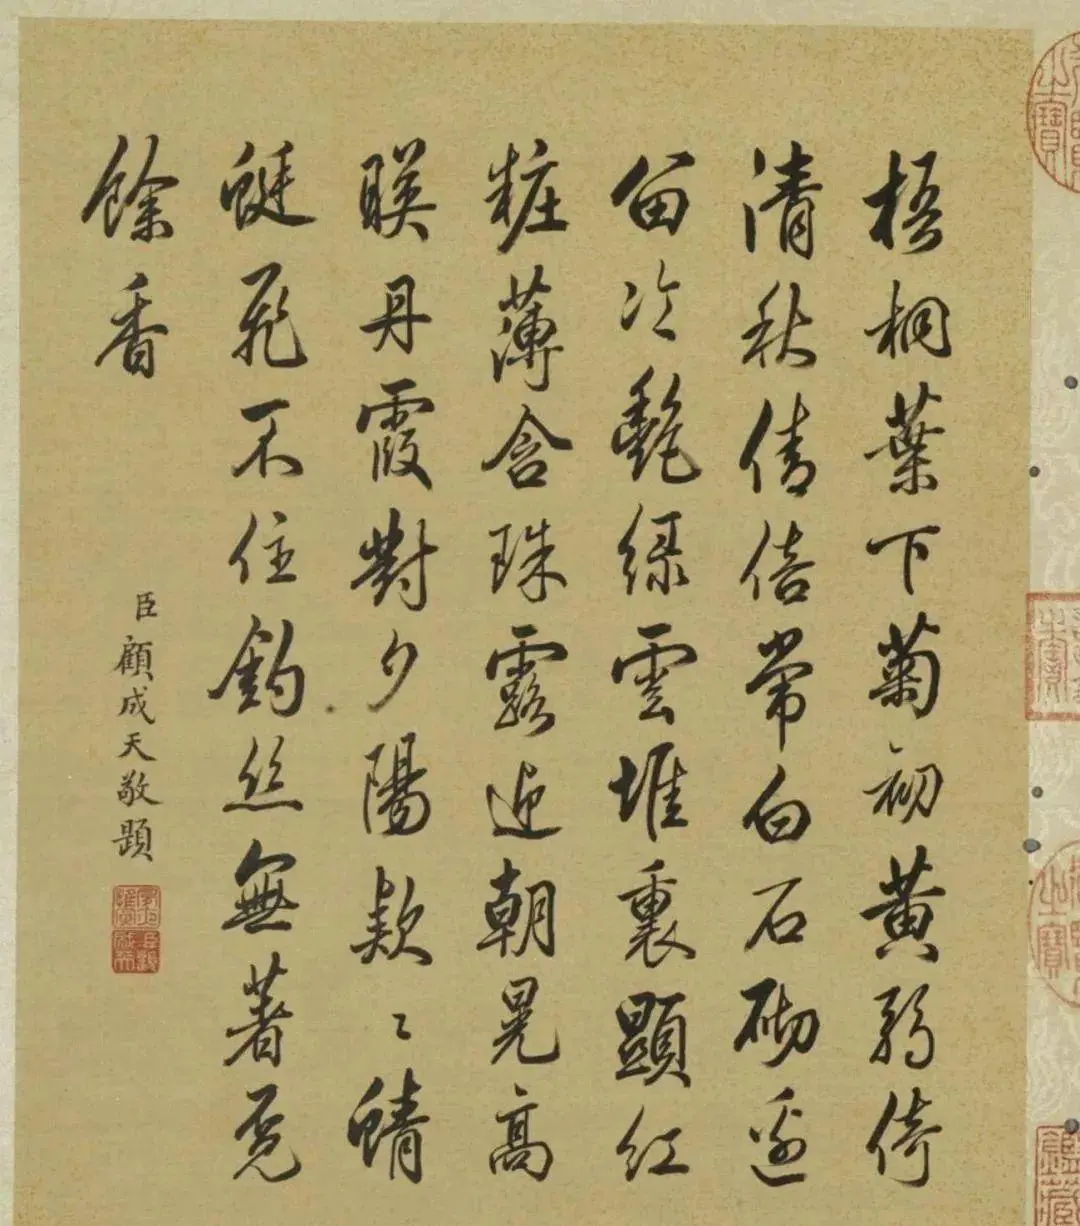 梧桐葉下菊初黄弱倚
清秋倩倍常白石砌邊
留冷艷緑雲堆裏顯紅
粧薄含珠露迎朝晃高
暎丹霞對夕陽款〻蜻
蜓飛不住釣絲無著覓
餘香
臣顧成天敬題